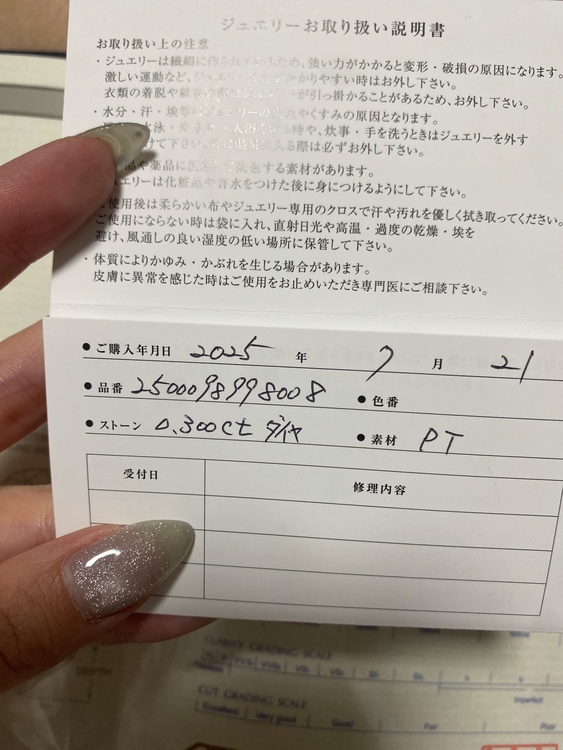 ジュエリーお取り扱い説明書
お取り扱い上の注意
・ジュエリーは繊細に作されているため、強い力がかかると変形・破損の原因になります。
激しい運動など、ジュエリーに かかりやすい時はお外し下さい。
衣類の着脱や が引っ掛かることがあるため、お外し下さい。
・水分・汗・埃 ジュエリーの くすみの原因となります。
水泳・ 入浴 時や、炊事・手を洗うときはジュエリーを外す
けて下さい。 る際は必ずお外し下さい。
品や薬品に する素材があります。
ュエリーは化粧品や香水をつけた後に身につけるようにして下さい。
ご使用後は柔らかい布やジュエリー専用のクロスで汗や汚れを優しく拭き取ってください。
ご使用にならない時は袋に入れ、直射日光や高温・過度の乾燥・埃を
避け、風通しの良い湿度の低い場所に保管して下さい。
・体質によりかゆみ・かぶれを生じる場合があります。
皮膚に異常を感じた時はご使用をお止めいただき専門医にご相談下さい。
●ご購入年月日 2025 年 7 月 21
●品番 2500098998008 ●色番
●ストーン 0.300ct ダイヤ ●素材 PT
受付日 修理内容
DEPTH
CLARITY GRADING SCALE
Imperfect
CUT GRADING SCALE
Excellent Very good Good Fair Poor